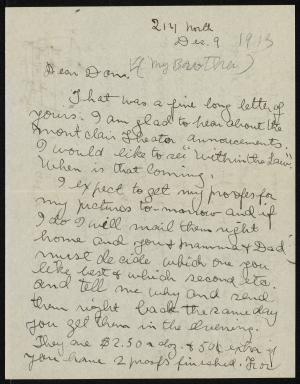 214 North
Dec. 9 1913
Dear Dom, (My Brother)
That was a fine long letter of
yours. I am glad to hear about the
Montclair Theater announcements.
I would like to see "Within the Law".
When is that coming.
I expect to get my proofs for
my pictures to-morrow and if
I do I will mail them right
home and you & Mamma & Dad
must decide which one you
like best & which second etc.
and tell me why and send
them right back the same day
you get them in the evening.
They are $2.50 a doz. & 50¢ extra if
you have 2 proofs finished. For